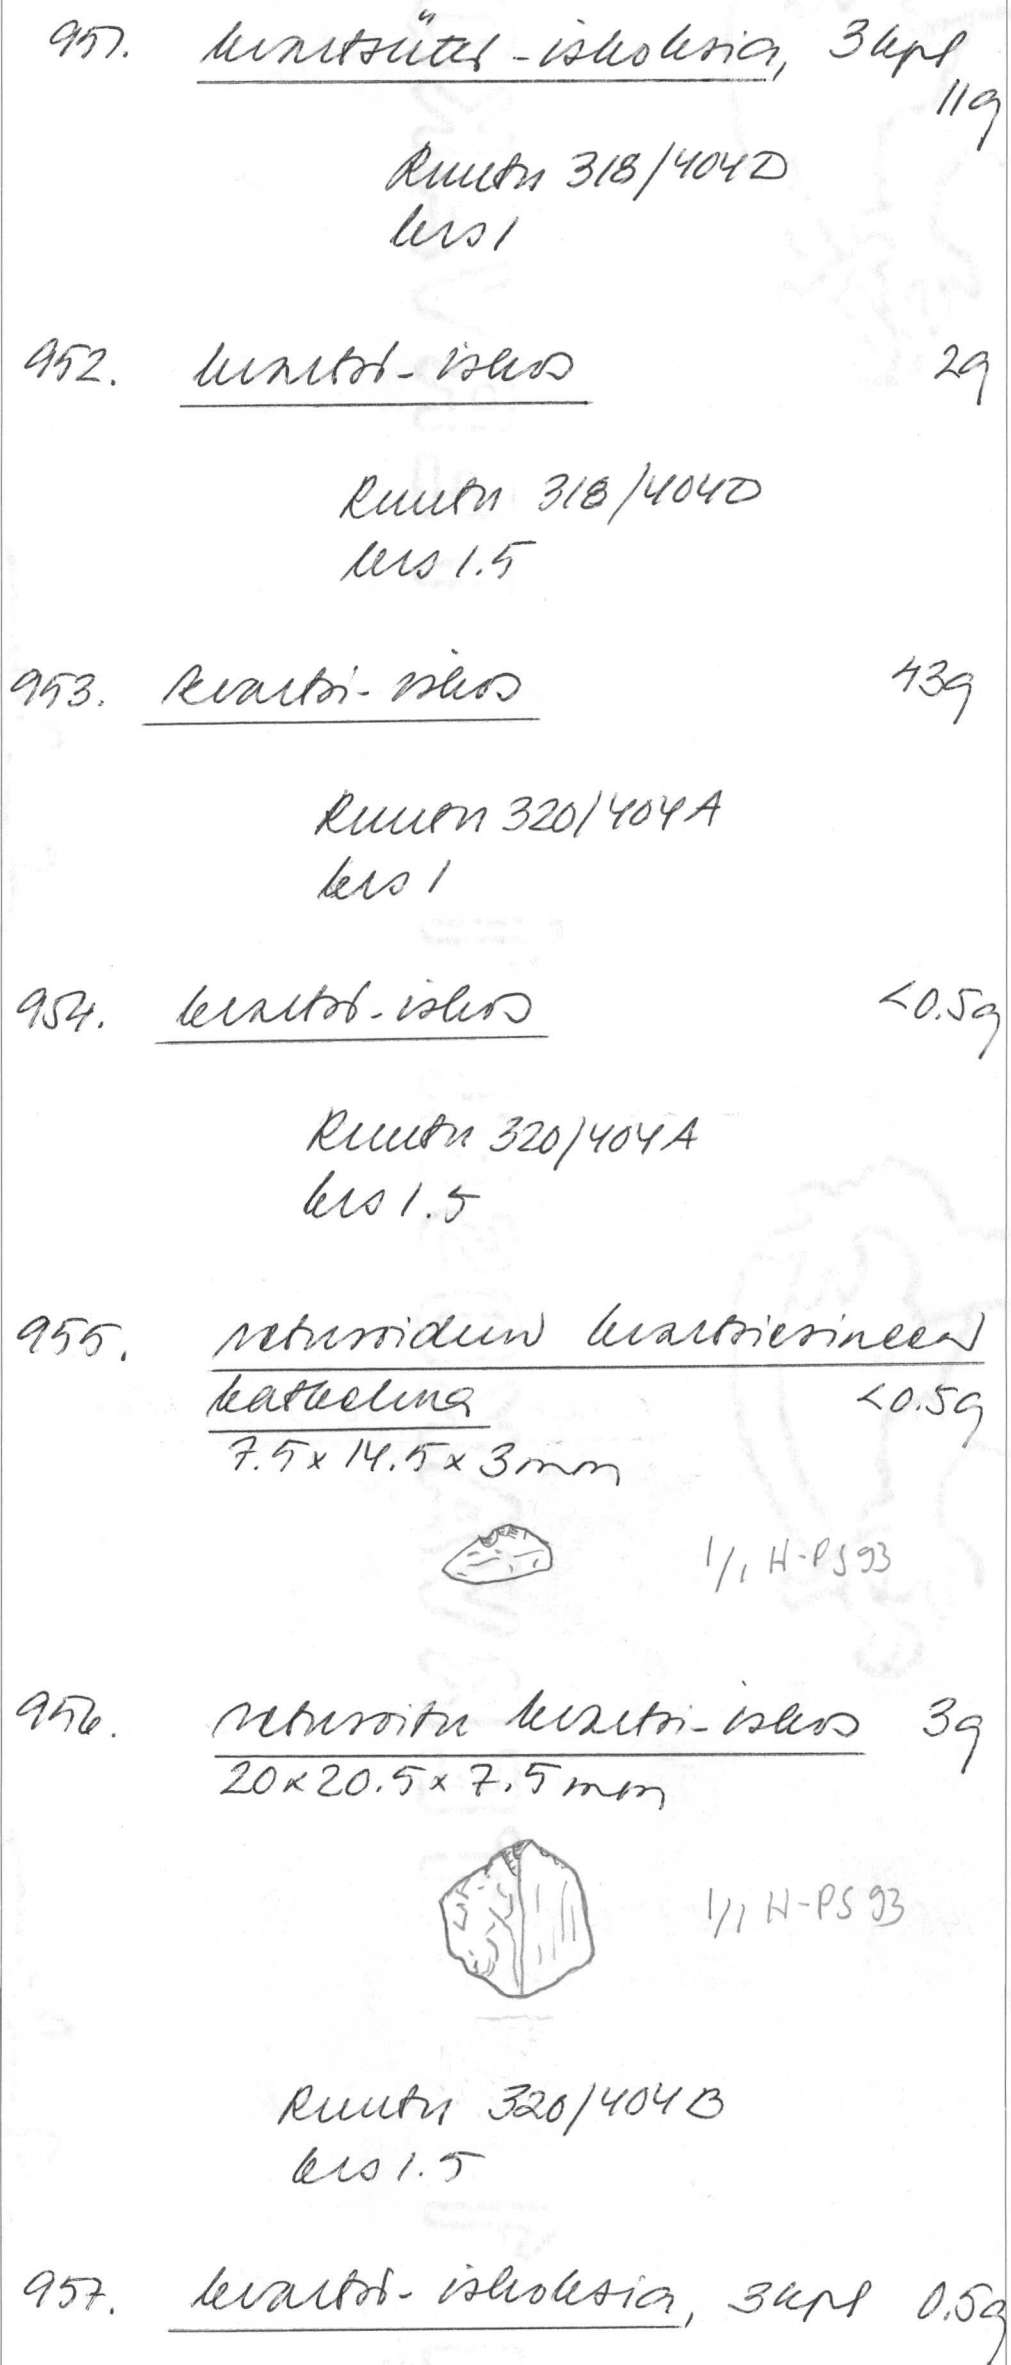 951. kvartsiitti-iskoksia, 3 kpl
11g
Ruutu 318/404D
krs 1
952. kvartsi-iskos 2g
Ruutu 318/404D
krs 1.5
953. kvartsi-iskos 43g
Ruutu 320/404A
krs 1
954. kvartsi-iskos <0.5g
Ruutu 320/404A
krs 1.5
955. retusoidun kvartsiesineen
katkelma <0.5g
7.5 x 14.5 x 3 mm
1/1 H-PS 93
956. retusoitu kvartsi-iskos 3g
20 x 20.5 x 7.5 mm
1/1 H-PS 93
Ruutu 320/404B
krs 1.5
957. kvartsi-iskoksia, 3 kpl 0.5g